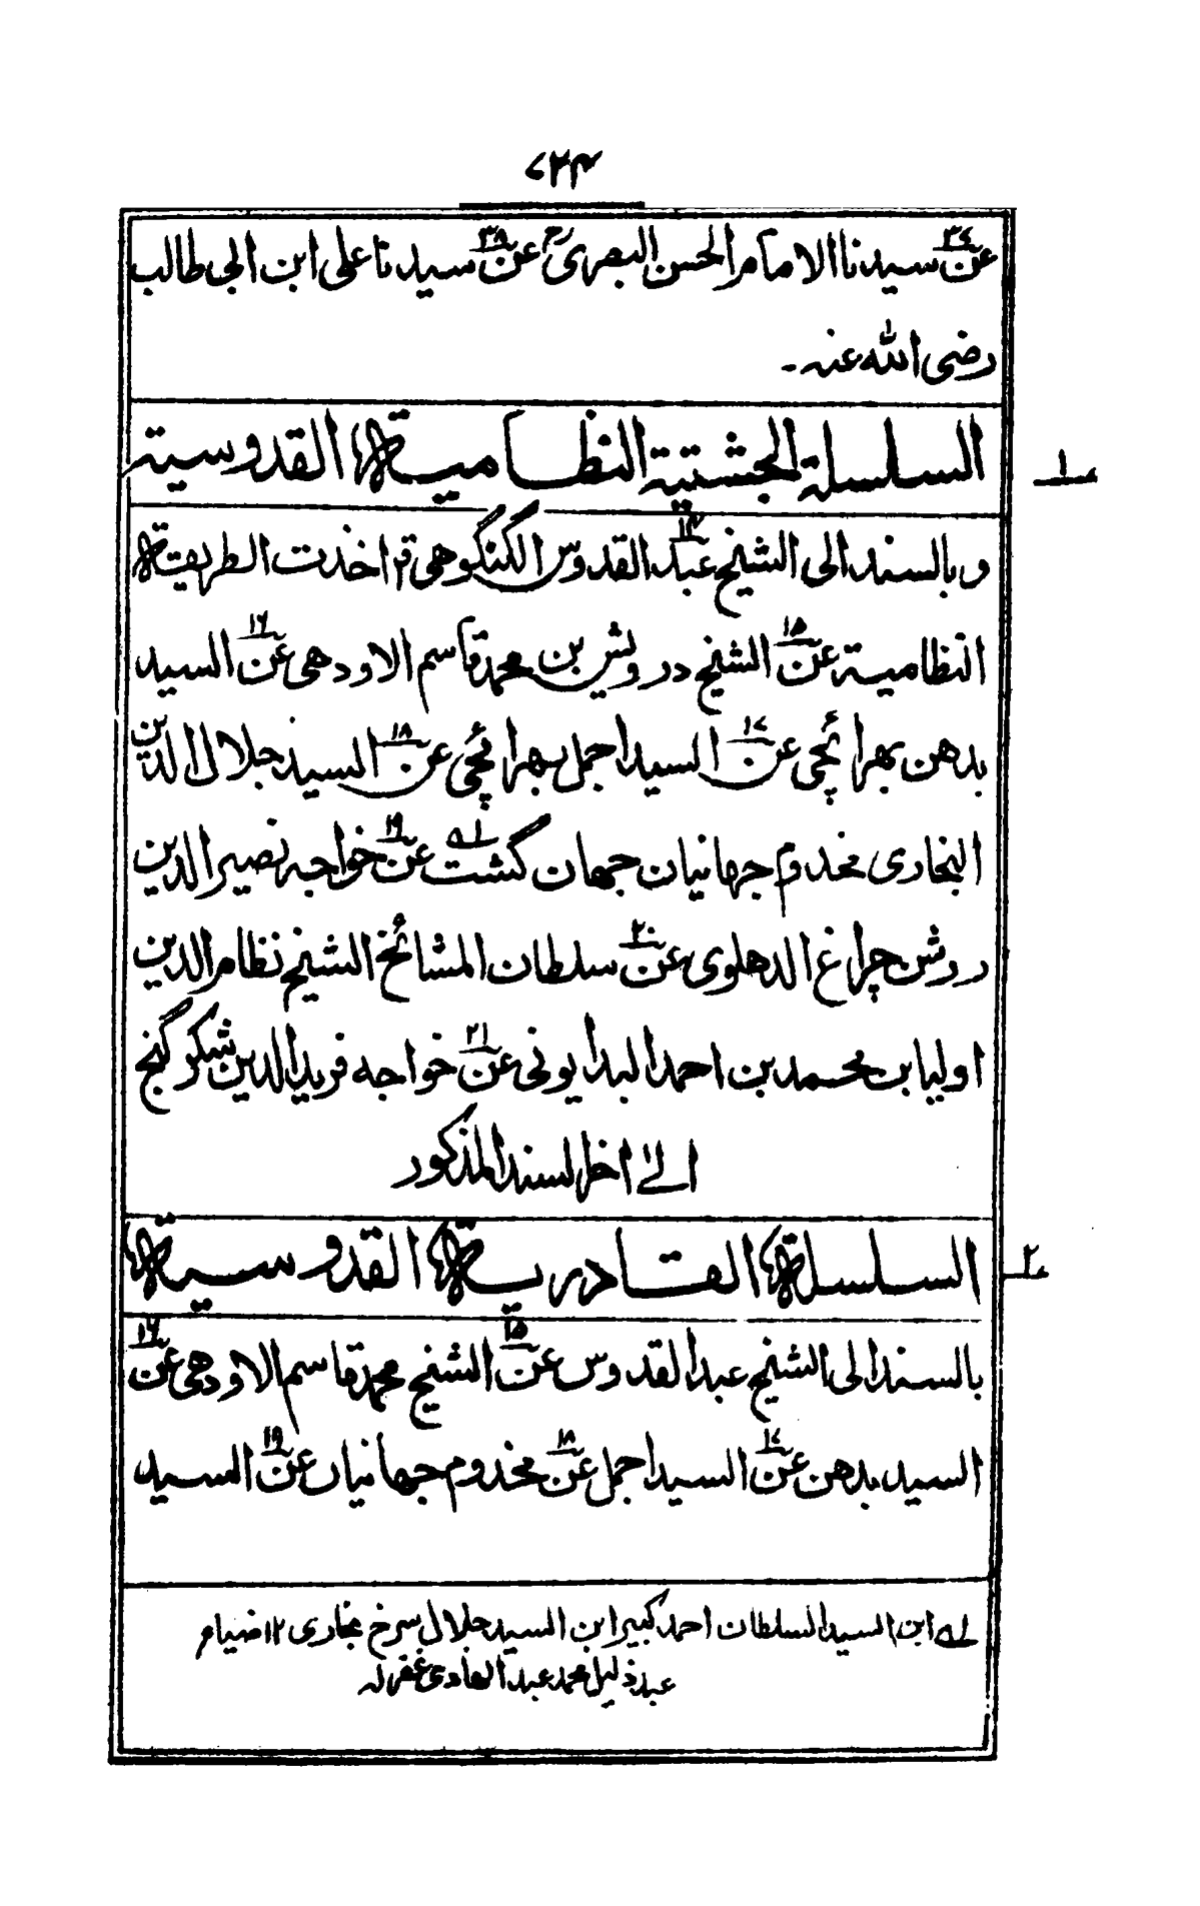 ۷۲۴
عن۳۷ سیدنا الامام الحسن البصریؒ عن۳۸ سیدنا علی ابن ابی طالب
رضی اللہ عنہ۔
السلسلة الچشتیة النظامیة القدوسیة
۱ء
وبالسند الی الشیخ عبد۱۴ القدوس الگنگوھی قد اخذت الطریقة
النظامیة عن۱۵ الشیخ درویش بن محمد قاسم الاودھی عن۱۶ السید
بدھن بھرائچی عن۱۷ السید اجمل بھرائچی عن۱۸ السید جلال الدین
البخاری مخدوم جہانیان جہان گشت لہ عن۱۹ خواجہ نصیر الدین
روشن چراغ الدھلوی عن۲۰ سلطان المشائخ الشیخ نظام الدین
اولیا بن محمد بن احمد البدایونی عن۲۱ خواجہ فرید الدین شکر گنج
الیٰ اخر السند المذکور
السلسلة القادریة القدوسیة
۲ء
بالسند الی الشیخ عبد القدوس عن۱۵ الشیخ محمد قاسم الاودھی عن۱۶
السید بدھن عن۱۷ السید اجمل عن۱۸ مخدوم جھانیاں عن۱۹ السید
لہ ابن السید السلطان احمد کبیر ابن السید جلال سرخ بخاری ۱۲ ضیاء
عبد ذلیل محمد عبد الھادی غفرلہ